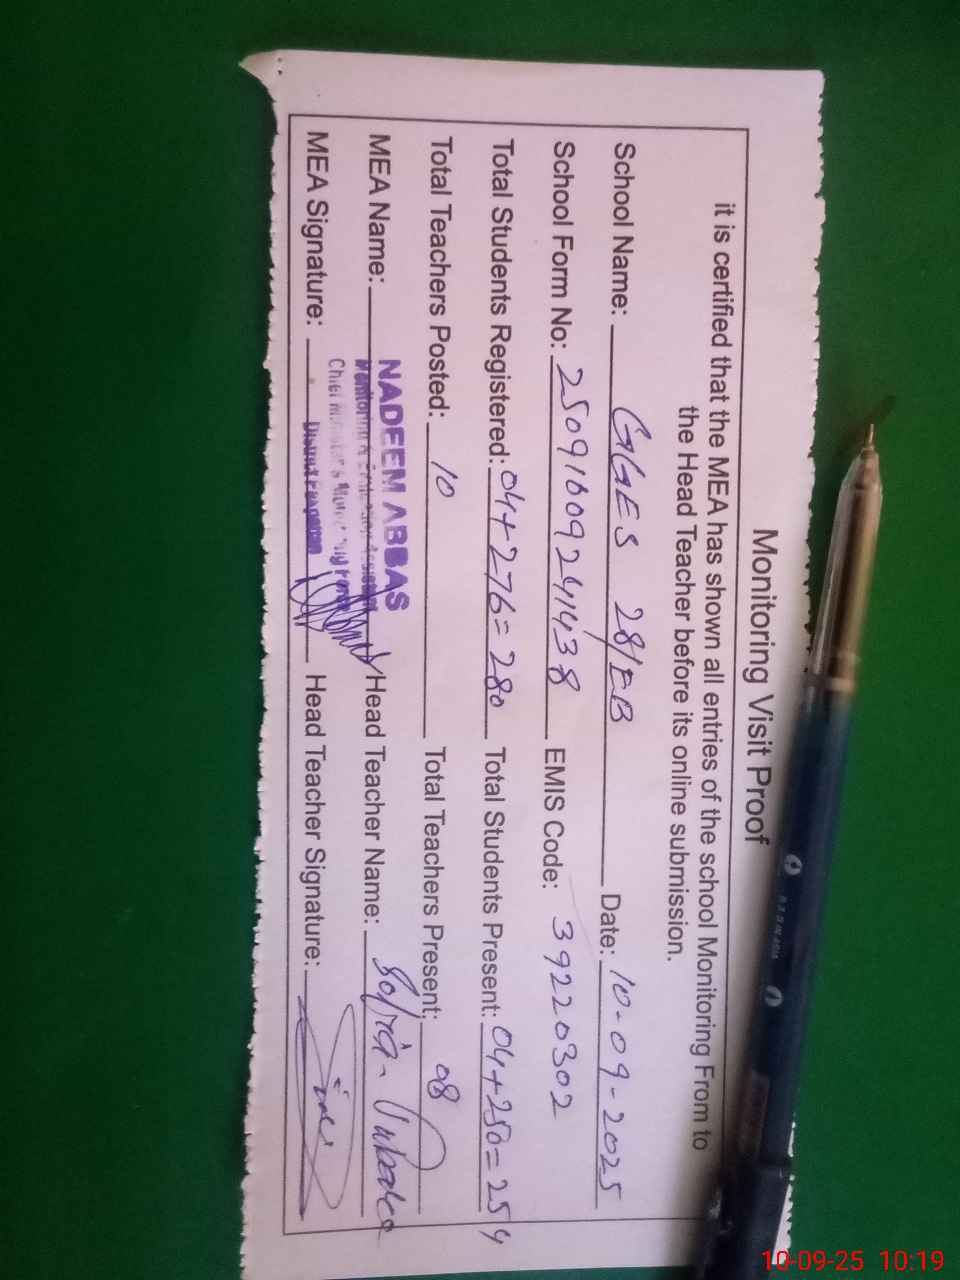 Monitoring Visit Proof
it is certified that the MEA has shown all entries of the school Monitoring From to
the Head Teacher before its online submission.
School Name: GGES 28/EB Date: 10-09-2025
School Form No: 25091609241438 EMIS Code: 39220302
Total Students Registered: 04+276=280 Total Students Present: 04+250=254
Total Teachers Posted: 10 Total Teachers Present: 08
MEA Name: NADEEM ABBAS Head Teacher Name:
Monitoring & Evaluation Assistant
Chief Minister's Monitoring Force
MEA Signature: District Pakpattan Head Teacher Signature:
10-09-25 10:19